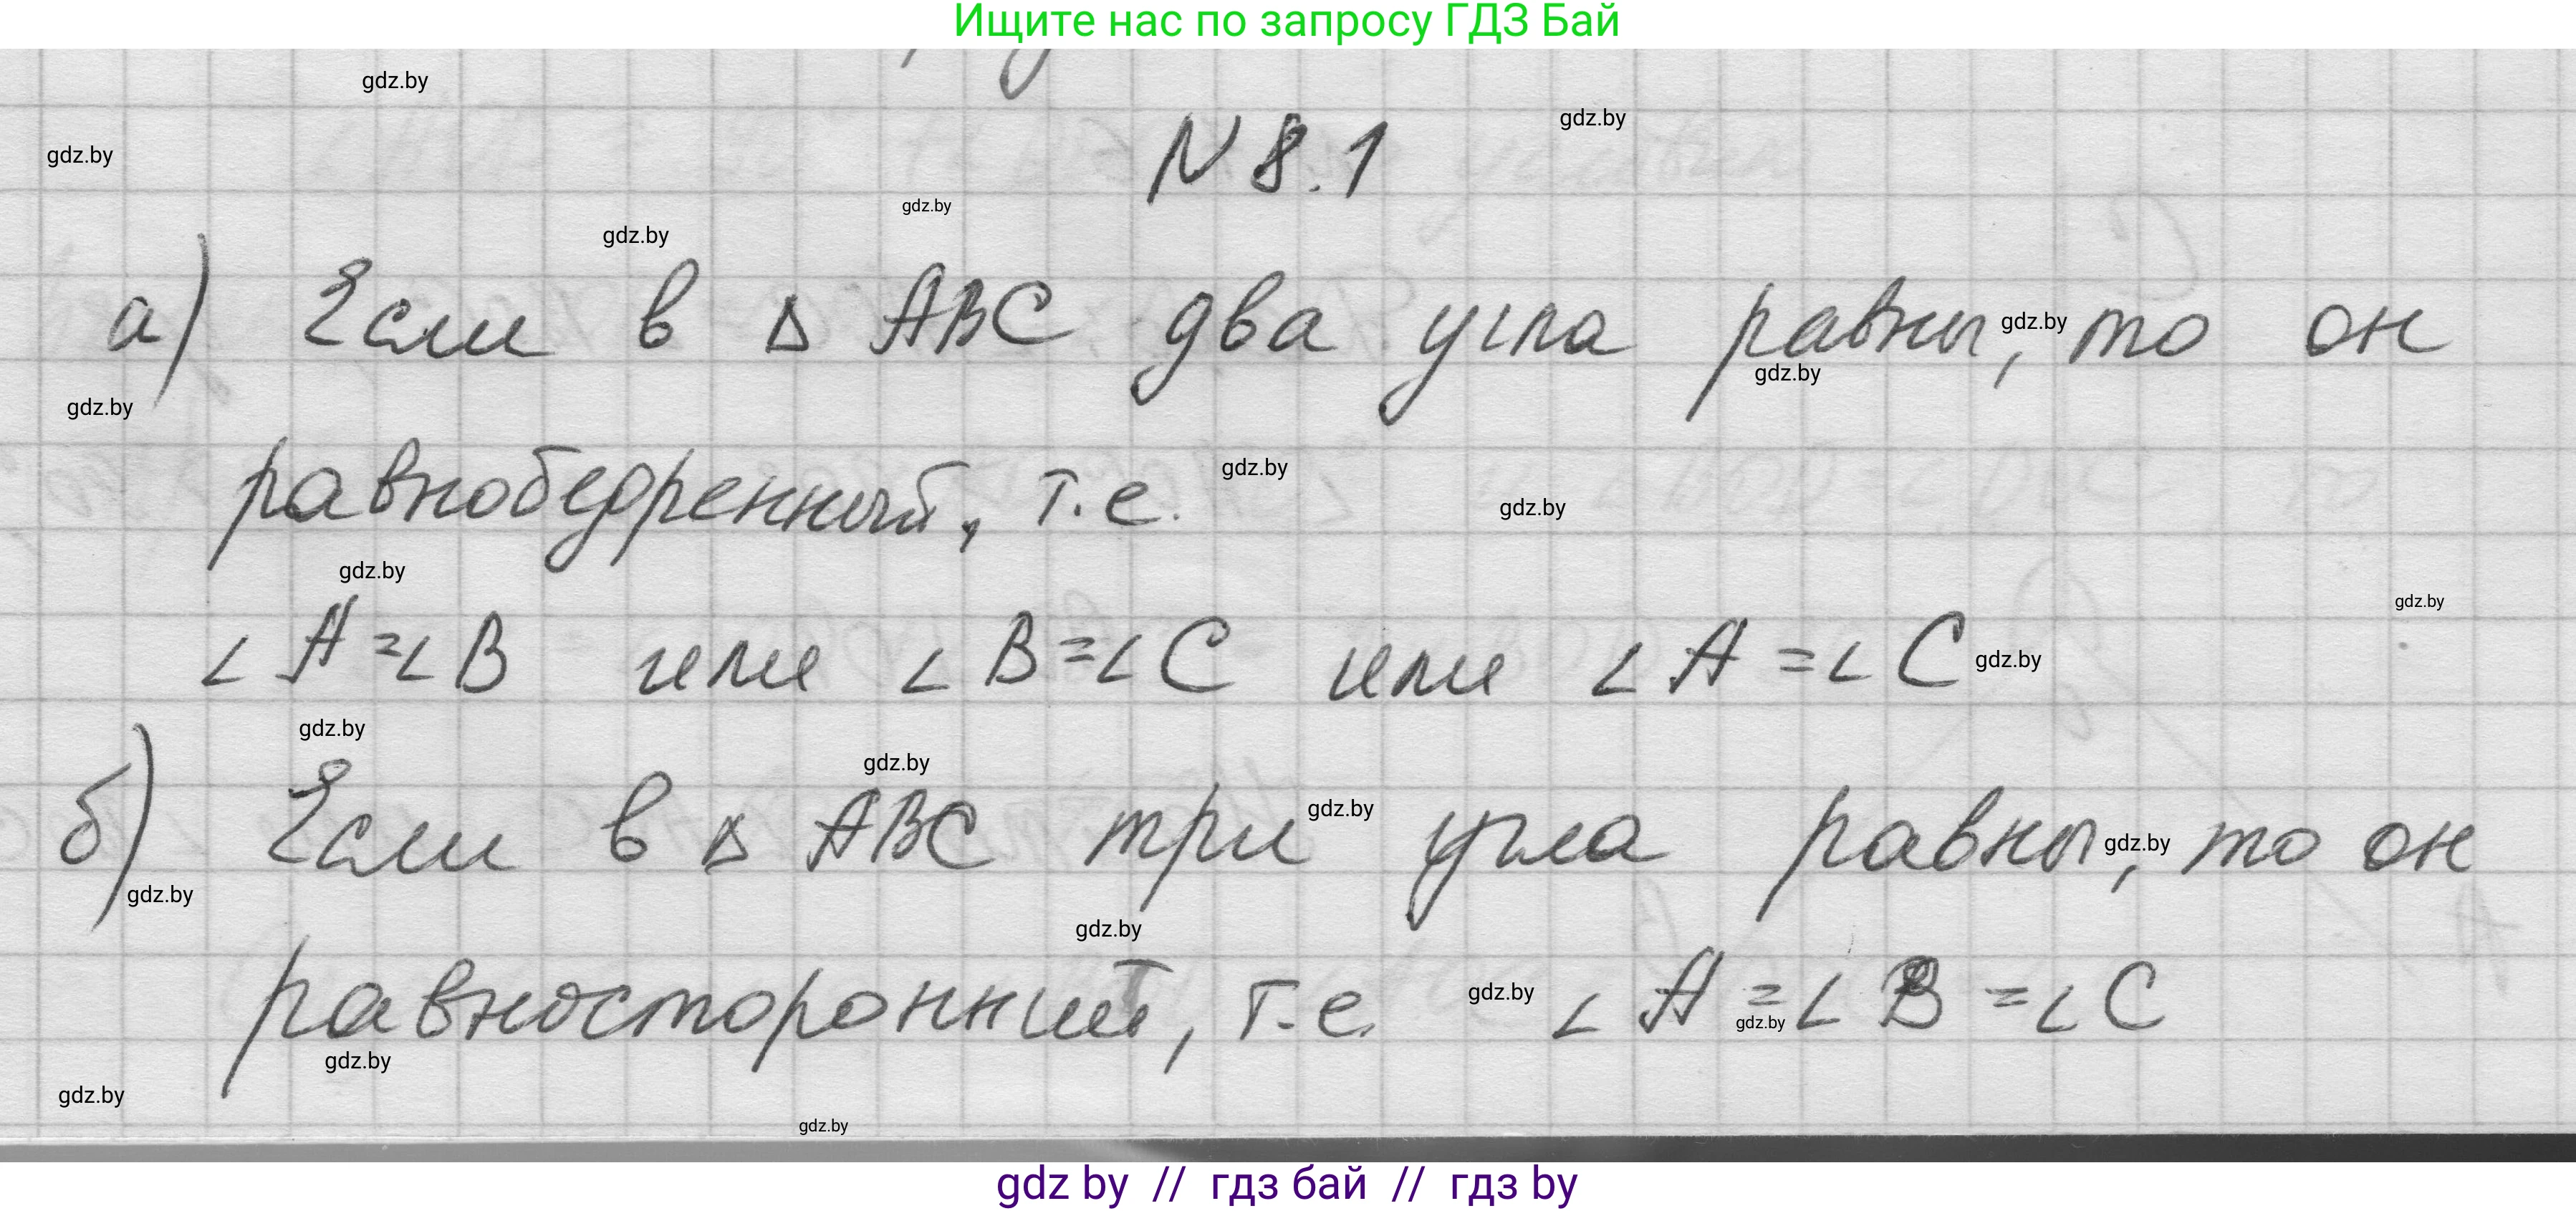 Ищите нас по запросу ГДЗ Бай
gdz.by
gdz.by
N 8.1
gdz.by
gdz.by
gdz.by
а) Если в △ ABC два угла равны, то он
gdz.by
gdz.by
gdz.by
равнобедренный, т.е.
gdz.by
gdz.by
gdz.by
gdz.by
∠A=∠B или ∠B=∠C или ∠A=∠C
gdz.by
gdz.by
gdz.by
gdz.by
б) Если в △ ABC три угла равны, то он
gdz.by
gdz.by
gdz.by
равносторонний, т.е. ∠A=∠B=∠C
gdz.by
gdz.by
gdz.by
gdz.by
gdz.by
gdz by // гдз бай // гдз by